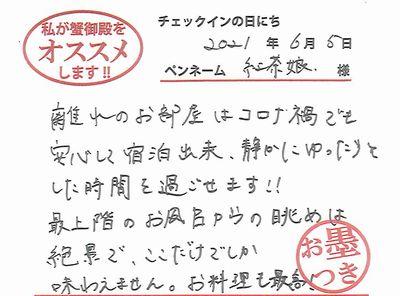 私が蟹御殿を
オススメ
します!!
チェックインの日にち
2021年6月5日
ペンネーム 紅茶娘. 様
離れのお部屋はコロナ禍でも
安心して宿泊出来、静かにゆったりと
した時間を過ごせます!!
最上階のお風呂からの眺めは
絶景で、ここだけでしか
味わえません。お料理も最高!
お墨
つき